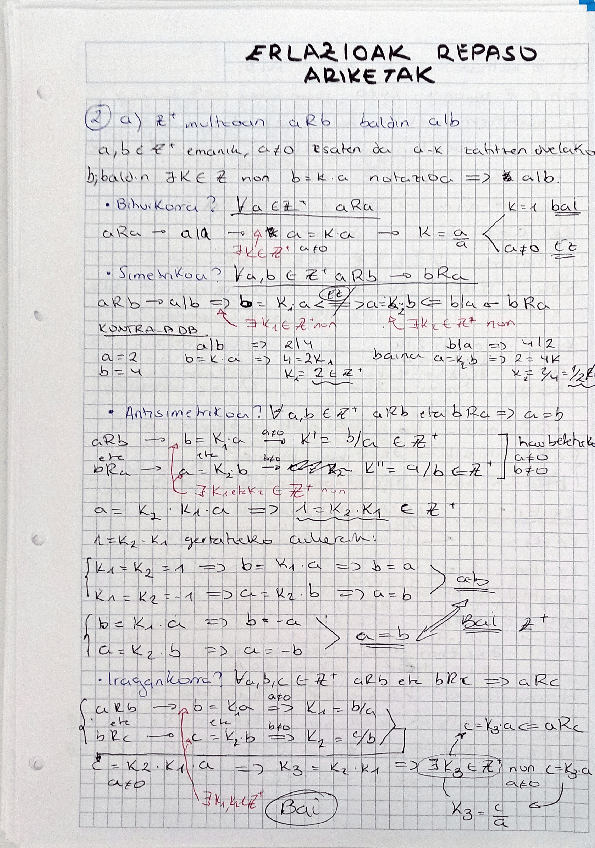 ERLAZIOAK REPASO
ARIKETAK
② a) Z⁺ multzoan aRb baldin a|b
a,b ∈ Z⁺ emanik, a≠0 esaten da a-k zatitzen duelako
b; baldin ∃K∈Z non b=k·a notazioa => a|b.
• Bihurkorra? ∀a∈Z⁺ aRa
aRa → a|a → a=k·a → K=a/a
K=1 bai
a≠0 Ez
∃K∈Z⁺ a≠0
• Simetrikoa? ∀a,b ∈ Z⁺ aRb → bRa
aRb → a|b => b=K₁·a Ez => a=K₂·b <= b|a ← bRa
∃K₁∈Z⁺ non ∃K₂∈Z⁺ non
KONTRA ADB
a|b => 2|4 b|a => 4|2
a=2 b=k·a => 4=2K₁ baina a=K₂b => 2=4K
b=4 K₁=2∈Z⁺ K₂=2/4=1/2
• Antisimetrikoa? ∀a,b∈Z⁺ aRb eta bRa => a=b
aRb → b=K₁·a a≠0 → K'=b/a ∈ Z⁺
eta eta
bRa → a=K₂·b b≠0 → K''=a/b∈Z⁺
a≠0
b≠0
∃K₁ eta K₂ ∈ Z⁺ non
a=K₂·K₁·a => 1=K₂·K₁ ∈ Z⁺
1=K₂·K₁ gertatzeko aukerak:
K₁=K₂=1 => b=K₁·a => b=a
K₁=K₂=-1 => a=K₂·b => a=b
b=K₁·a => b=-a
a=K₂·b => a=-b
a=b
Bai Z⁺
• Iragankorra? ∀a,b,c ∈ Z⁺ aRb eta bRc => aRc
aRb → b=K₁a a≠0 => K₁=b/a
eta eta
bRc → c=K₂·b b≠0 => K₂=c/b
c=K₃·a <= aRc
c=K₂·K₁·a => K₃=K₂·K₁ => ∃K₃∈Z⁺ non c=K₃·a
a≠0 a≠0
∃K₁,K₂∈Z⁺
Bai
K₃=c/a